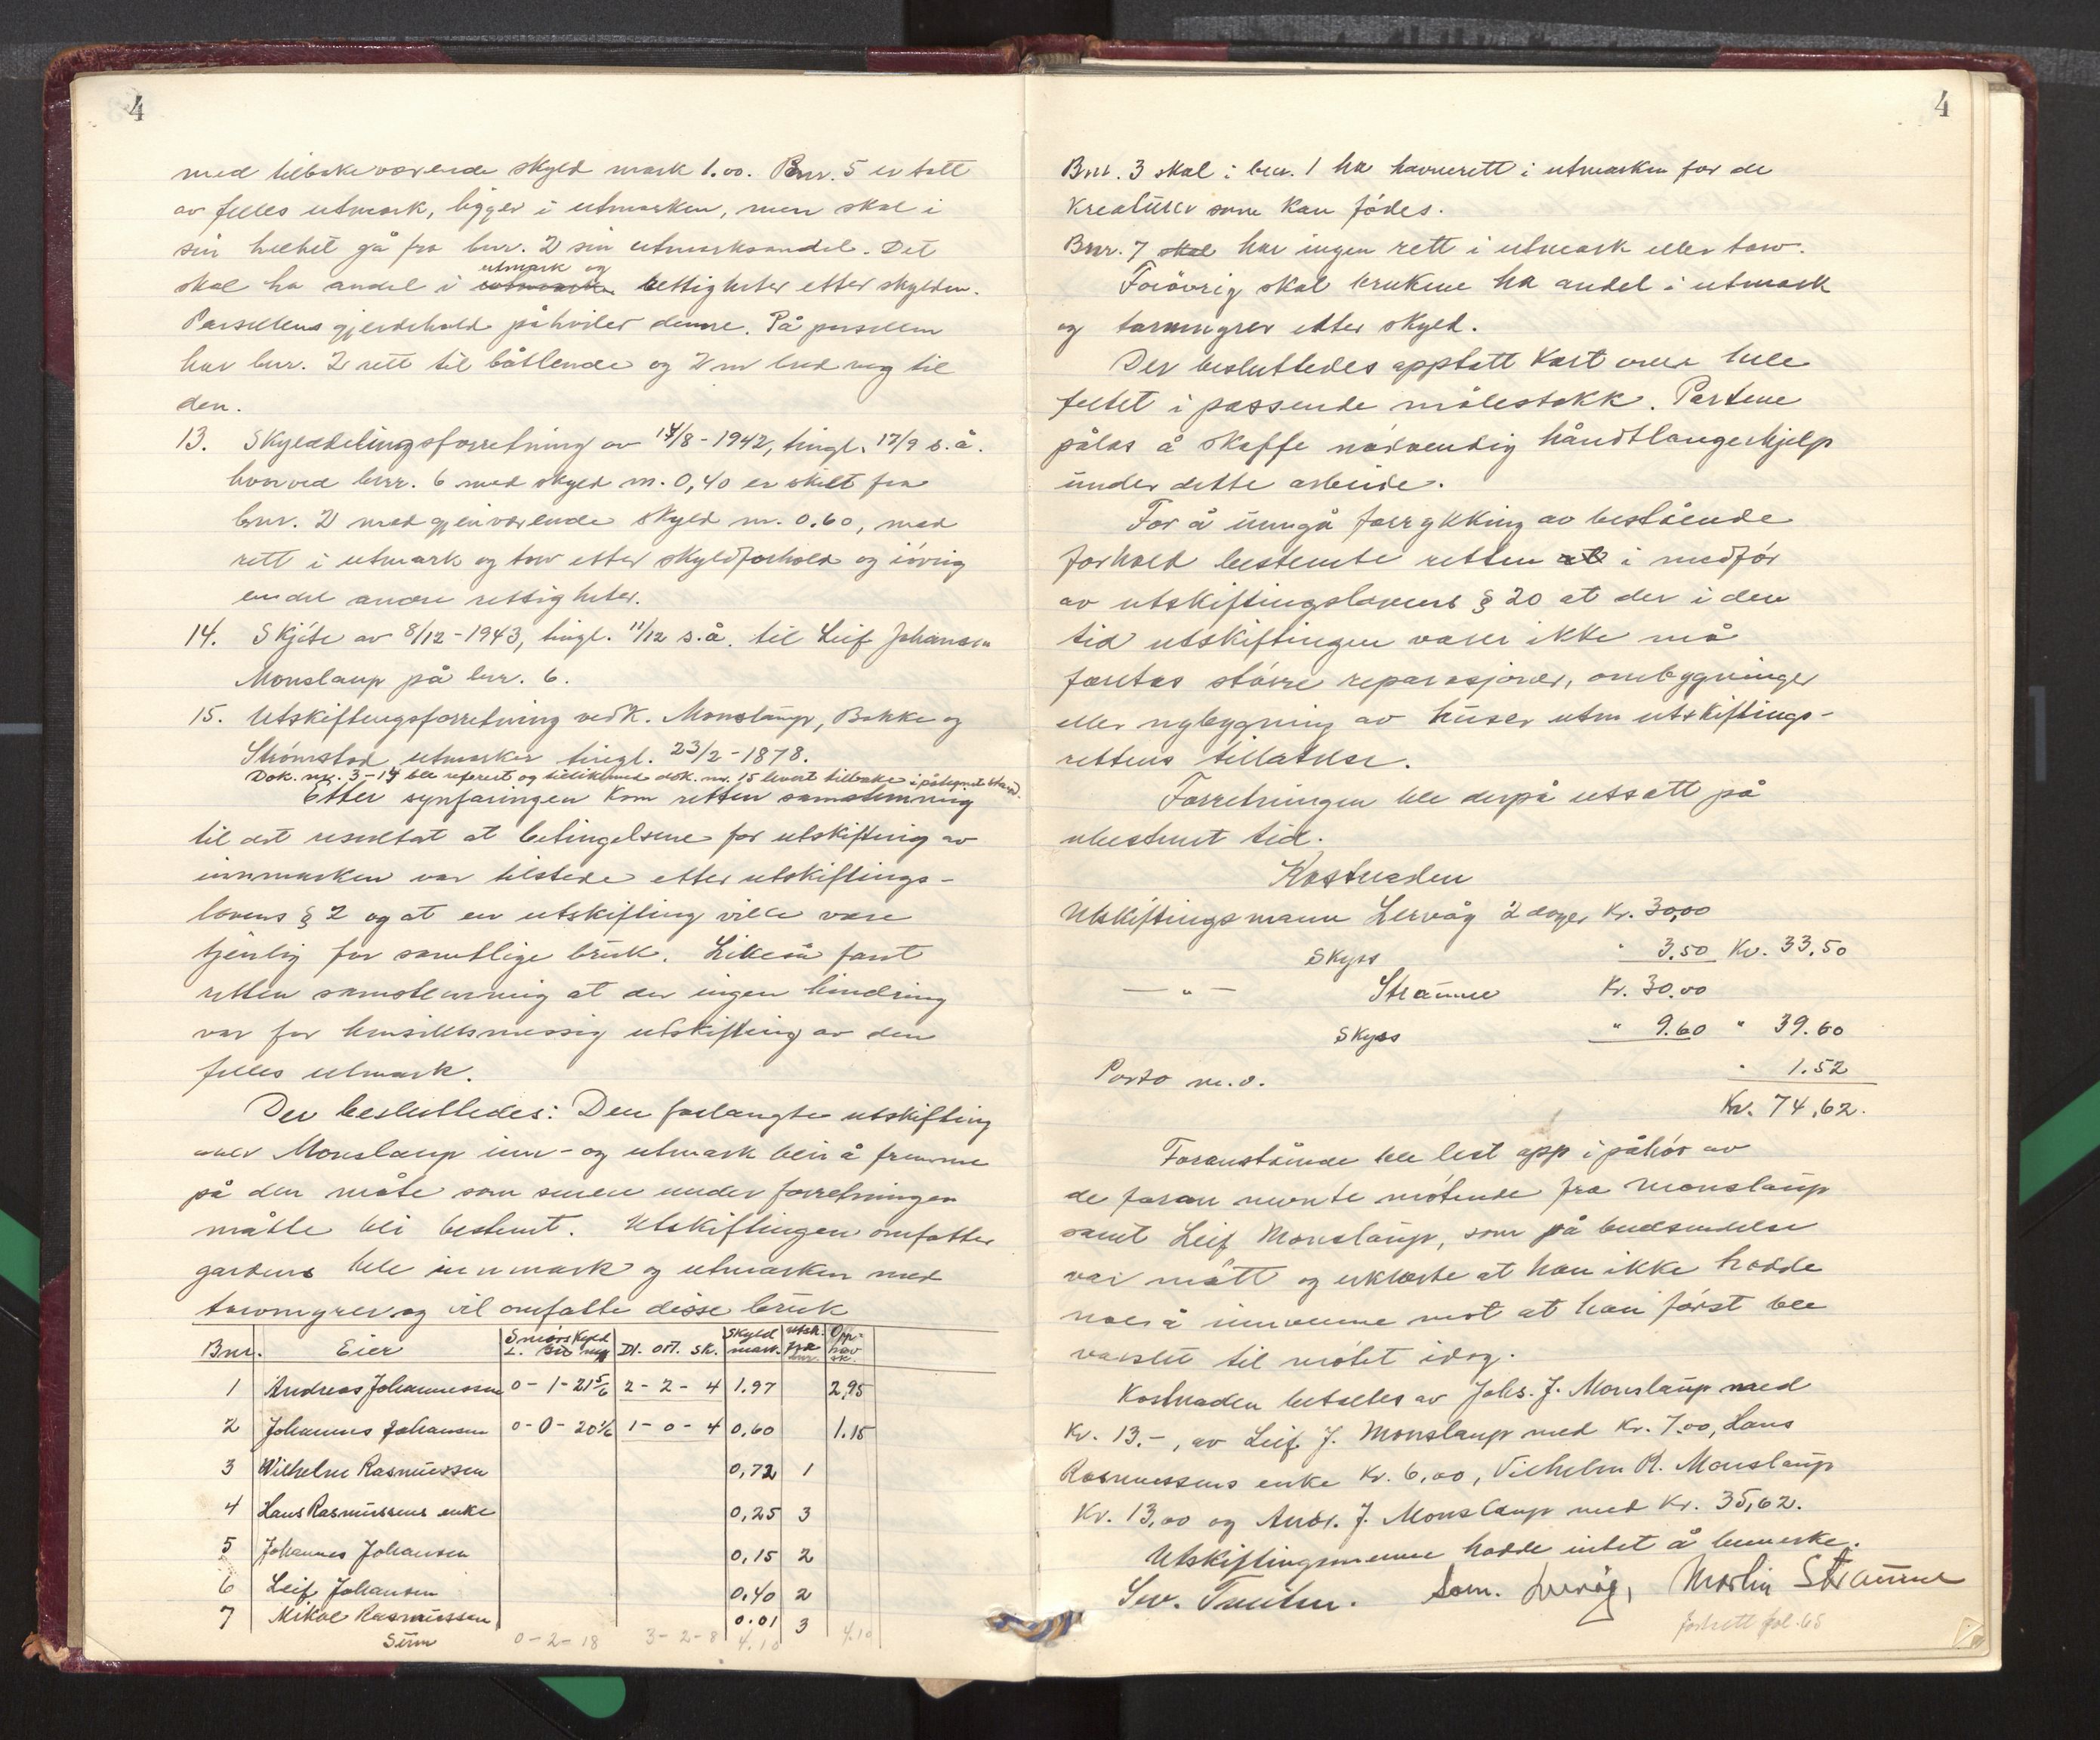 4
med tilbakeværende skyld mark 1.00. Bnr. 5 er tatt
av felles utmark, ligger i utmarken, men skal i
sin helhet gå fra bnr. 2 sin utmarksandel. Det
utmark og
skal ha andel i utmarken rettigheter etter skylden.
Parsellens gjerdehold påhviler denne. På parsellen
har bnr. 2 rett til båtlende og 2 m bred veg til
den.
13. Skylddelingsforretning av 14/8-1942, tingl. 17/9 s.å.
hvorved bnr. 6 med skyld m. 0,40 er skilt fra
bnr. 2 med gjenværende skyld m. 0.60, med
rett i utmark og torv etter skyldforhold og iøvrig
endel andre rettigheter.
14. Skjøte av 8/12-1943, tingl. 11/12 s.å. til Leif Johansen
Monslaup på bnr. 6.
15. Utskiftingsforretning vedk. Monslaup, Bakke og
Strømstad utmarker tingl. 23/2-1878.
Dok. nr. 3-14 ble referert og tillikemed dok. nr. 15 levert tilbake i påtegnet stand.
Etter synfaringen kom retten samstemmig
til det resultat at betingelsene for utskifting av
innmarken var tilstede etter utskiftings-
lovens § 2 og at en utskifting ville være
tjenlig for samtlige bruk. Likeså fant
retten samstemmig at der ingen hindring
var for hensiktsmessig utskifting av den
felles utmark.
Der besluttedes: Den forlangte utskifting
over Monslaup inn- og utmark blir å fremme
på den måte som senere under forretningen
måtte bli bestemt. Utskiftingen omfatter
gardens hele innmark og utmarken med
torvmyrer og vil omfatte disse bruk
Bnr. Eier Smørskyld L. mrk Dl. ort. sk. Skyld mark. Utsk. fra bnr. Opp- hav sk.
1 Andreas Johannessen 0-1-21 5/6 2-2-4 1.97 2,95
2 Johannes Johansen 0-0-20 1/6 1-0-4 0,60 1.15
3 Wilhelm Rasmussen 0,72 1
4 Hans Rasmussens enke 0,25 3
5 Johannes Johansen 0,15 2
6 Leif Johansen 0,40 2
7 Mikal Rasmussen 0.01 3
Sum 0-2-18 3-2-8 4.10 4.10
4
Bnr. 3 skal i bnr. 1 ha havnerett i utmarken for de
kreaturer som kan fødes.
Bnr. 7 skal har ingen rett i utmark eller torv.
Forøvrig skal brukene ha andel i utmark
og torvmyrer etter skyld.
Der besluttedes opptatt kart over hele
feltet i passende målestokk. Partene
pålas å skaffe nødvendig håndtlangerhjelp
under dette arbeide.
For å unngå forrykking av bestående
forhold bestemte retten at i medfør
av utskiftingslovens § 20 at der i den
tid utskiftingen varer ikke må
foretas større reparasjoner, ombygninger
eller nybygning av huser uten utskiftings-
rettens tillatelse.
Forretningen ble derpå utsatt på
ubestemt tid.
Kostnaden
Utskiftingsmann Lervåg 2 dager Kr. 30,00
Skyss " 3,50 Kr. 33,50
— " — Straume Kr. 30.00
Skyss " 9.60 " 39.60
Porto m.v. " 1.52
Kr. 74,62.
Foranstående ble lest opp i påhør av
de foran nevnte møtende fra Monslaup
samt Leif Monslaup, som på budsendelse
var møtt og erklærte at han ikke hadde
noe å innvenne mot at han først ble
varslet til møtet idag.
Kostnaden betaltes av Johs. J. Monslaup med
Kr. 13.-, av Leif J. Monslaup med Kr. 7.00, Hans
Rasmussens enke Kr. 6,00, Vilhelm R. Monslaup
Kr. 13,00 og Andr. J. Monslaup med Kr. 35,62.
Utskiftingsmennene hadde intet å bemerke.
Sev. Lervåg, Martin Straume
Forhett fol. 65